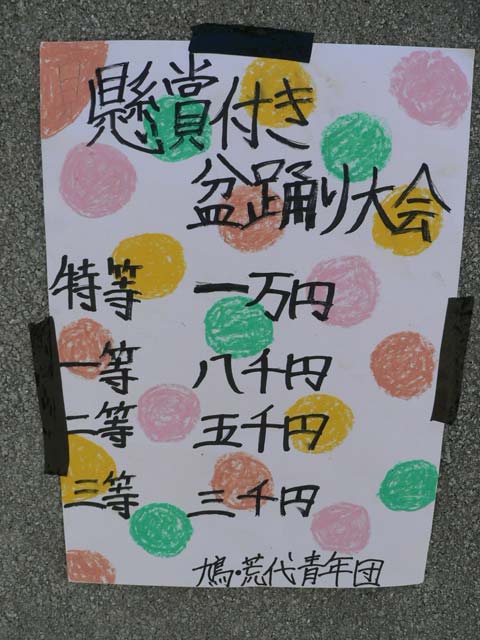 懸賞付き
盆踊り大会
特等 一万円
一等 八千円
二等 五千円
三等 三千円
鳩・荒代青年団